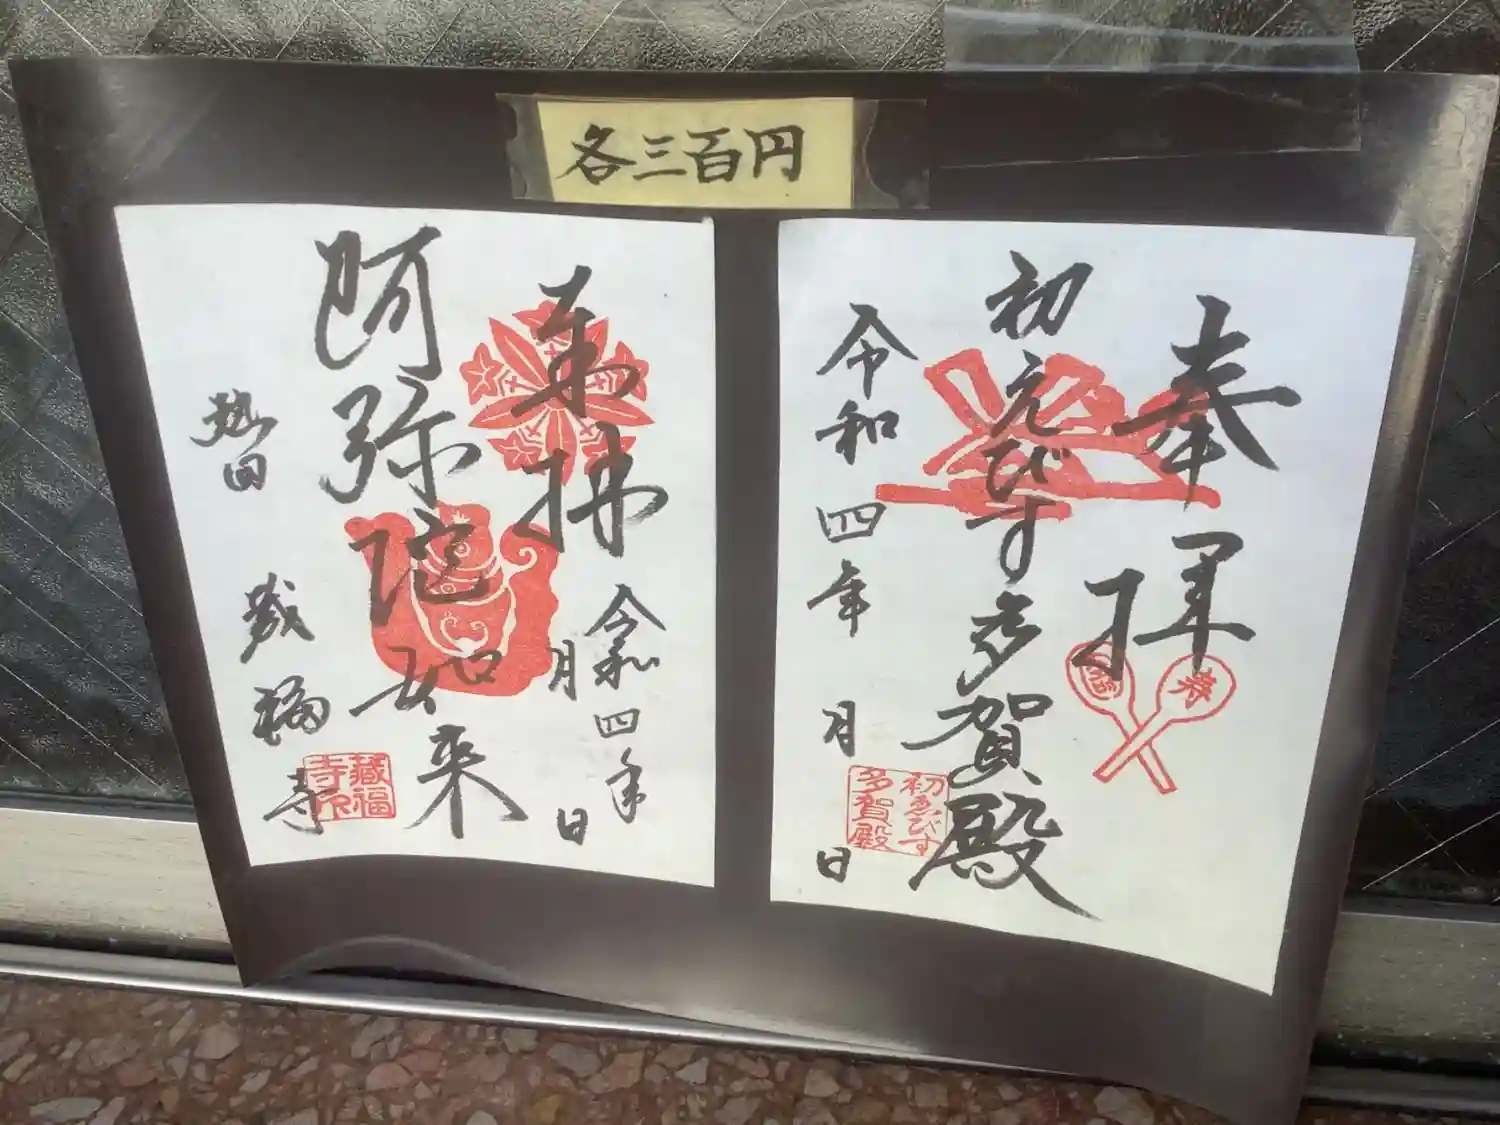 各三百円
奉拝
初えびす多賀殿
令和四年 月 日
福
寿
初ゑびす
多賀殿
奉拝
令和四年
月 日
阿弥陀如来
熱田
蔵福寺
蔵福
寺印